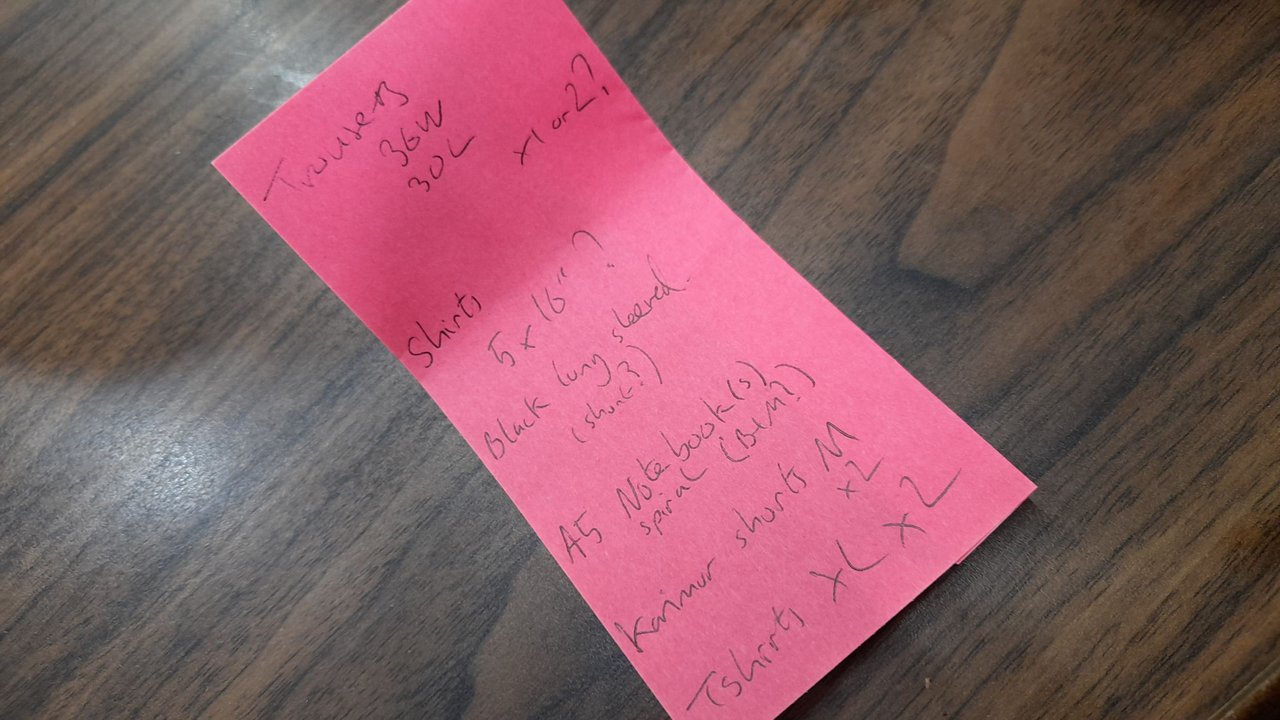 Trousers
36W
30L x1 or 2?
Shirts
5 x 16" ?
Black long sleeved.
(short?)
A5 Notebook(s)
spiral (B+M?)
Karimor shorts M
x2
Tshirts XL x2